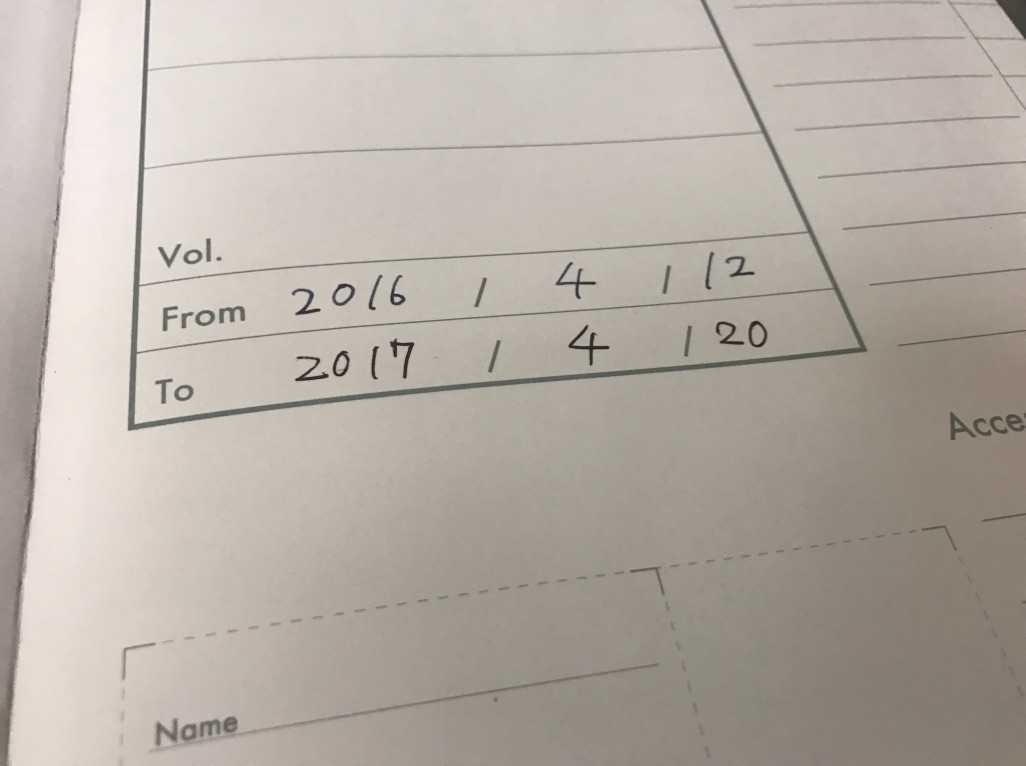 Vol.
From 2016 / 4 / 12
To 2017 / 4 / 20
Name